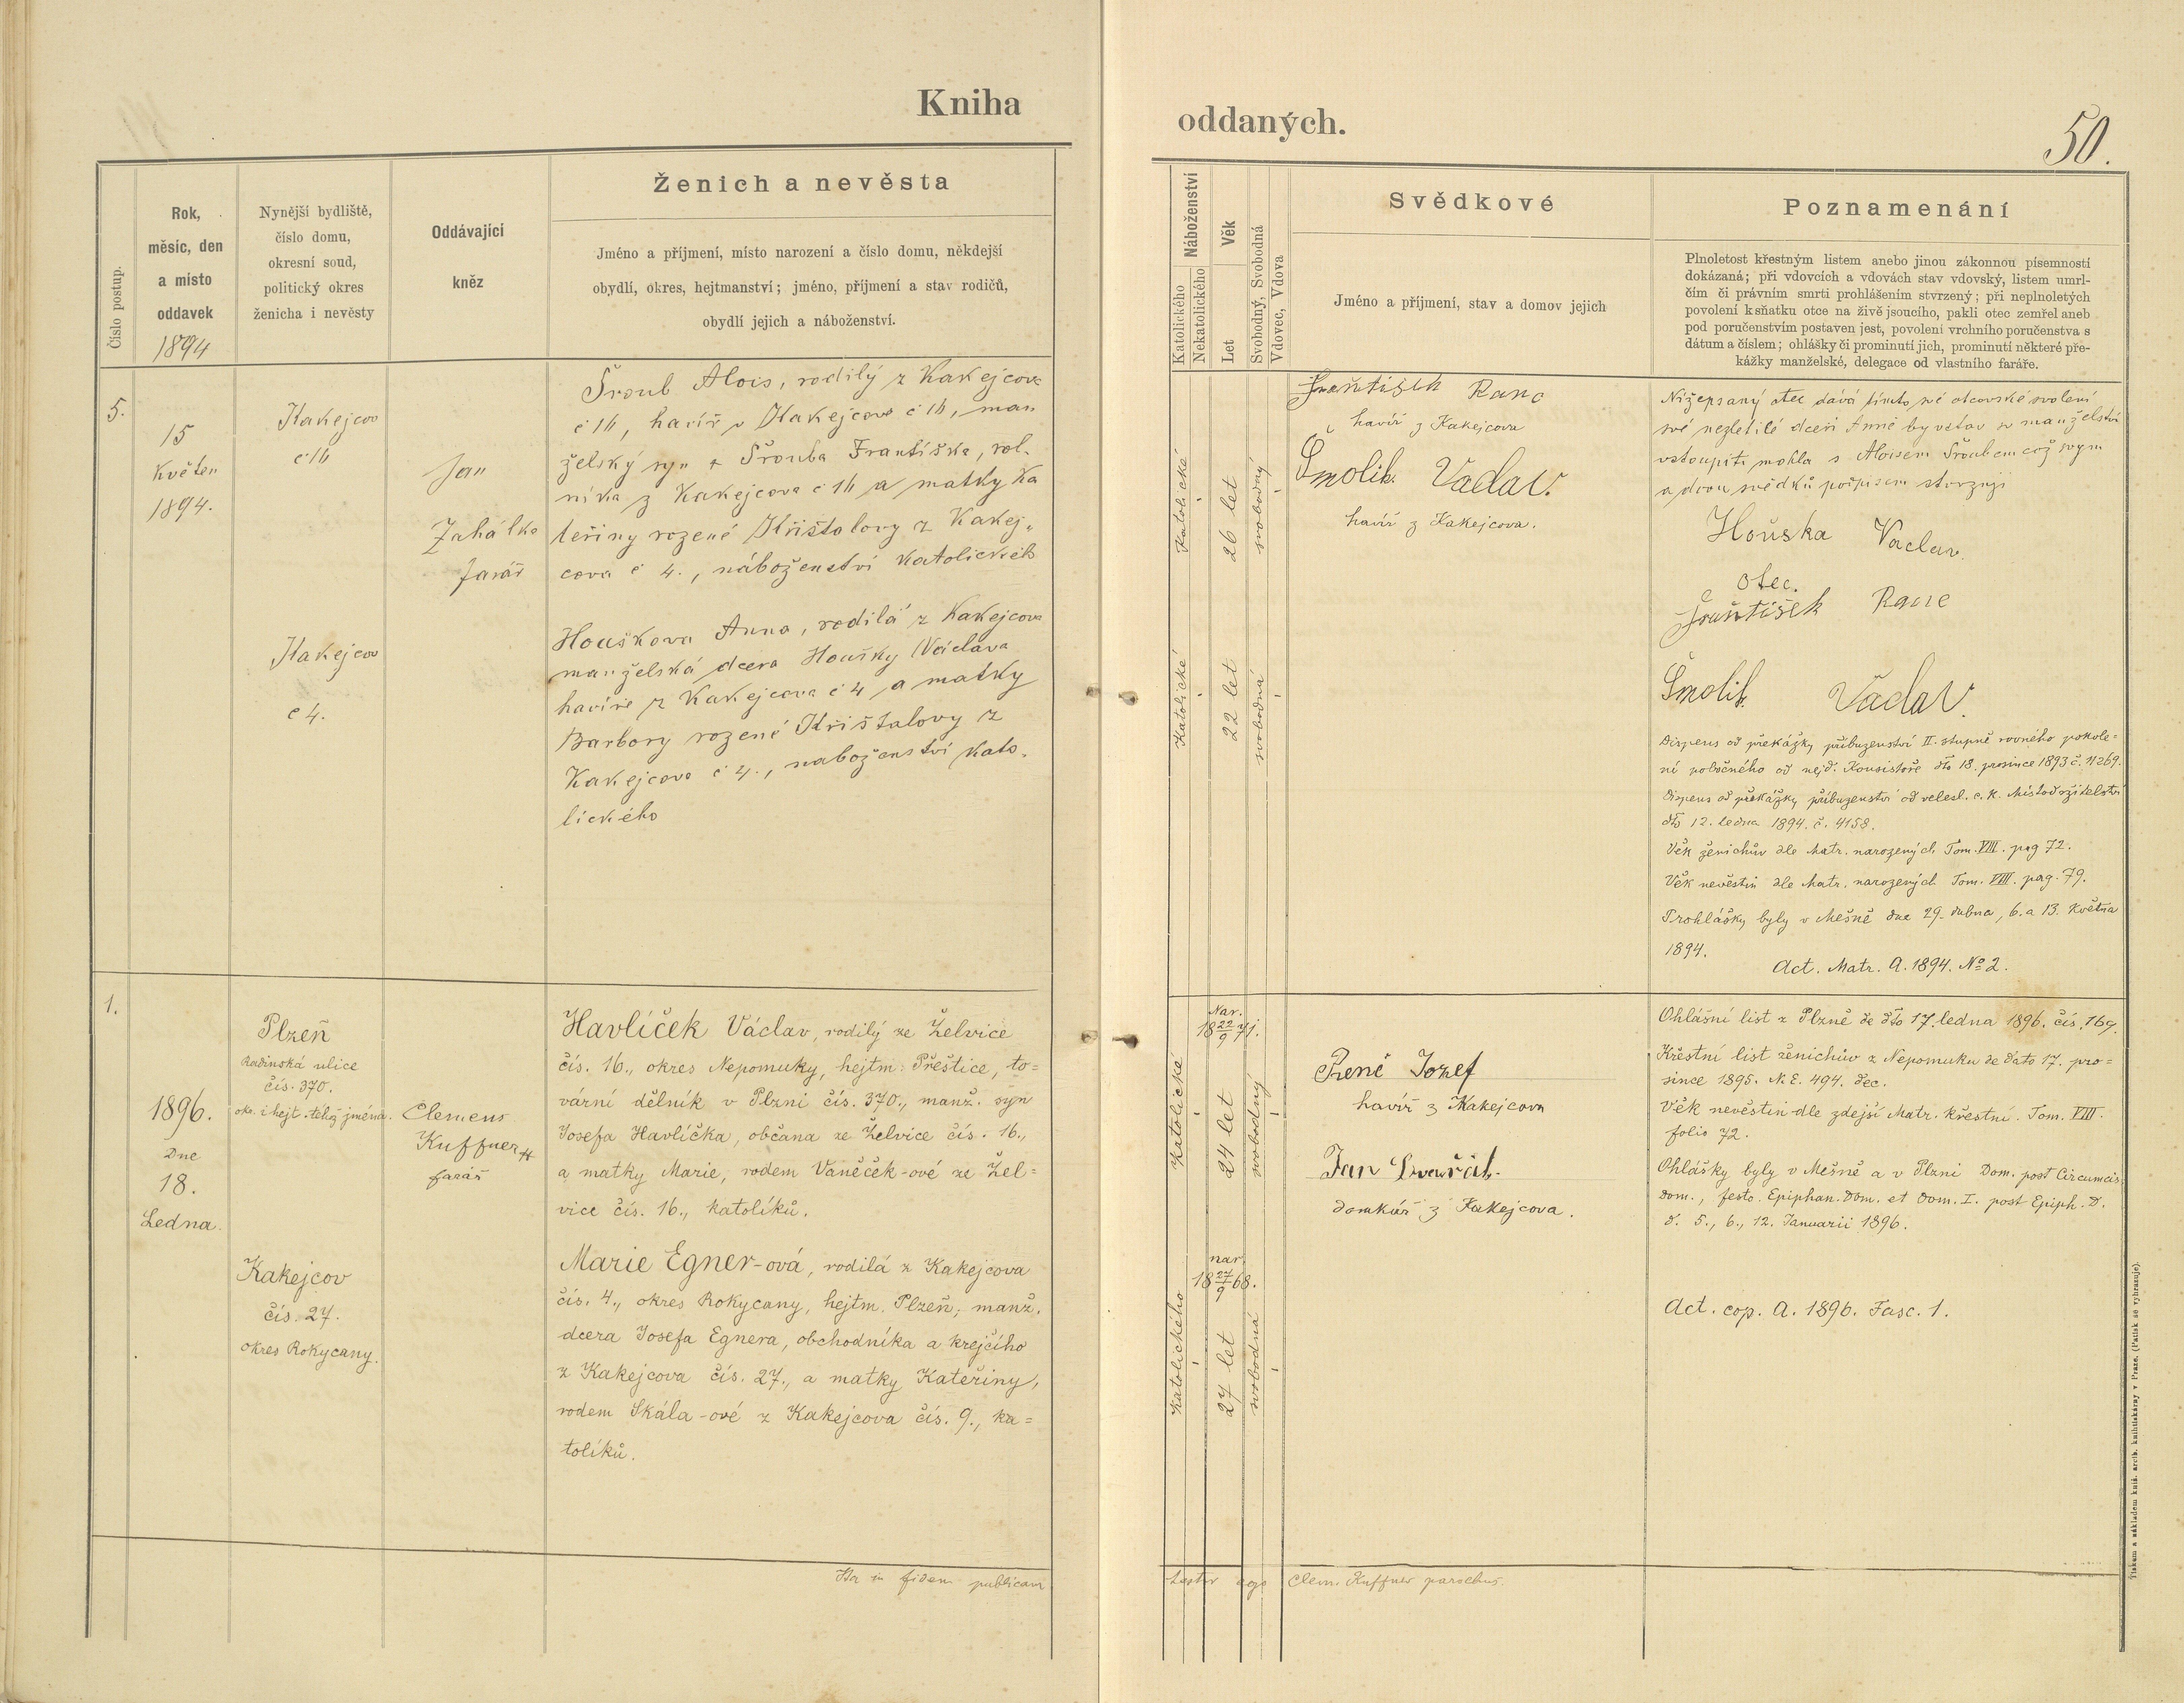 Kniha
oddaných.
50.
Číslo postup.
Rok,
měsíc, den
a místo
oddavek
1894
Nynější bydliště,
číslo domu,
okresní soud,
politický okres
ženicha i nevěsty
Oddávající
kněz
Ženich a nevěsta
Jméno a příjmení, místo narození a číslo domu, někdejší
obydlí, okres, hejtmanství; jméno, příjmení a stav rodičů,
obydlí jejich a náboženství.
Náboženství
Katolického
Nekatolického
Věk
Let
Svobodný, Svobodná
Vdovec, Vdova
Svědkové
Jméno a příjmení, stav a domov jejich
Poznamenání
Plnoletost křestným listem anebo jinou zákonnou písemností
dokázaná; při vdovcích a vdovách stav vdovský, listem umrl-
čím či právním smrti prohlášením stvrzený; při neplnoletých
povolení k sňatku otce na živě jsoucího, pakli otec zemřel aneb
pod poručenstvím postaven jest, povolení vrchního poručenstva s
dátum a číslem; ohlášky či prominutí jich, prominutí některé pře-
kážky manželské, delegace od vlastního faráře.
5.
15
Květen
1894.
Kakejcov
č 16
Jan
Zahálka
farář
Šroub Alois, rodilý z Kakejcova
č 16, havíř v Kakejcově č 16, man
želský syn + Šrouba Františka, rol-
níka z Kakejcova č 16 a matky Ka
teřiny rozené Krištalovy z Kakej-
cova č 4., náboženství katolických
Kakejcov
č 4.
Houškova Anna, rodilá z Kakejcova
manželská dcera Houšky Václava
havíře z Kakejcova č 4 a matky
Barbory rozené Krištalovy z
Kakejcova č 4., naboženství kato-
lického
Katolické
26 let
svobodný
Katolické
22 let
svobodná
František Ranc
havíř z Kakejcova
Šmolik Vaclav.
havíř z Kakejcova.
Nížepsaný otec dává tímto své otcovské svolení
své nezletilé dceri Anně by v stav sv manželství
vstoupiti mohla s Aloisem Šroubem což svym
a dvou svědků podpisem stvrzuji
Houska Vaclav.
otec.
František Ranc
Šmolik Vaclav.
Dispens od překážky příbuzenství II. stupně rovného pokole-
ní pobočného od nejd. Konsistoře dto 18. prosince 1893 č. 11269.
Dispens od překážky příbuzenství od velesl. c. k. Místodržitelství
dto 12. ledna 1894. č. 4158.
Věk ženichův dle Matr. narozených Tom. VIII. pag 72.
Věk nevěstin dle Matr. narozených Tom. VIII. pag. 79.
Prohlášky byly v Mešně dne 29. dubna, 6. a 13. Května
1894.
Act. Matr. A. 1894. No 2.
1.
1896.
Dne
18.
Ledna.
Plzeň
Radinská ulice
čís. 370.
okr. i hejt. téhož jména.
Clemens
Kuffner
farář
Havlíček Václav, rodilý ze Želvice
čís. 16., okres Nepomuky, hejtm. Přeštice, to=
vární dělník v Plzni čís. 370., manž. syn
Josefa Havlíčka, občana ze Želvice čís. 16.,
a matky Marie, rodem Vaněček-ové ze Žel=
vice čís. 16., katolíků.
Kakejcov
čís. 27.
okres Rokycany.
Marie Egner-ová, rodilá z Kakejcova
čís. 4., okres Rokycany, hejtm. Plzeň, manž.
dcera Josefa Egnera, obchodníka a krejčího
z Kakejcova čís. 27., a matky Kateřiny,
rodem Skála-ové z Kakejcova čís. 9., ka=
tolíků.
Nar.
18 22/9 71.
katolické
24 let
svobodný
nar.
18 27/9 68.
katolického
27 let
svobodná
Josef
havíř z Kakejcova
Jan
domkář z Kakejcova.
Ohlášní list z Plzně de dto 17. ledna 1896. čís. 169.
Křestní list ženichův z Nepomuku de dato 17. pro=
since 1895. N. E. 494. dec.
Věk nevěstin dle zdejší Matr. křestní. Tom. VIII.
folio 72.
Ohlášky byly v Mešně a v Plzni Dom. post Circumcis.
Dom., festo. Epiphan. Dom. et Dom. I. post Epiph. D.
d. 5., 6., 12. Januarii 1896.
Act. cop. A. 1896. Fasc. 1.
Ita in fidem publicam
testor ego Clem. Kuffner parochus.
Tiskem a nákladem kníž. arcib. knihtiskárny v Praze. (Patisk se vyhrazuje).